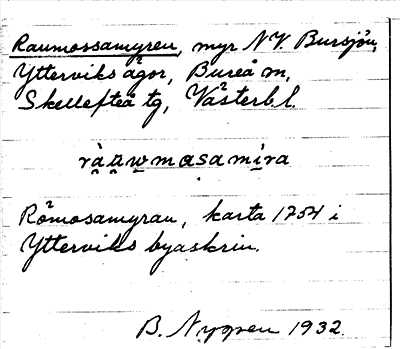 Raumossamyren, myr N.V. Bursjön,
Ytterviks ägor, Bureå m,
Skellefteå tg, Västerb. l.
ràu̯w̥masamíra
Råmosamyran, karta 1754 i
Ytterviks byaskrin.
B. Nygren 1932.